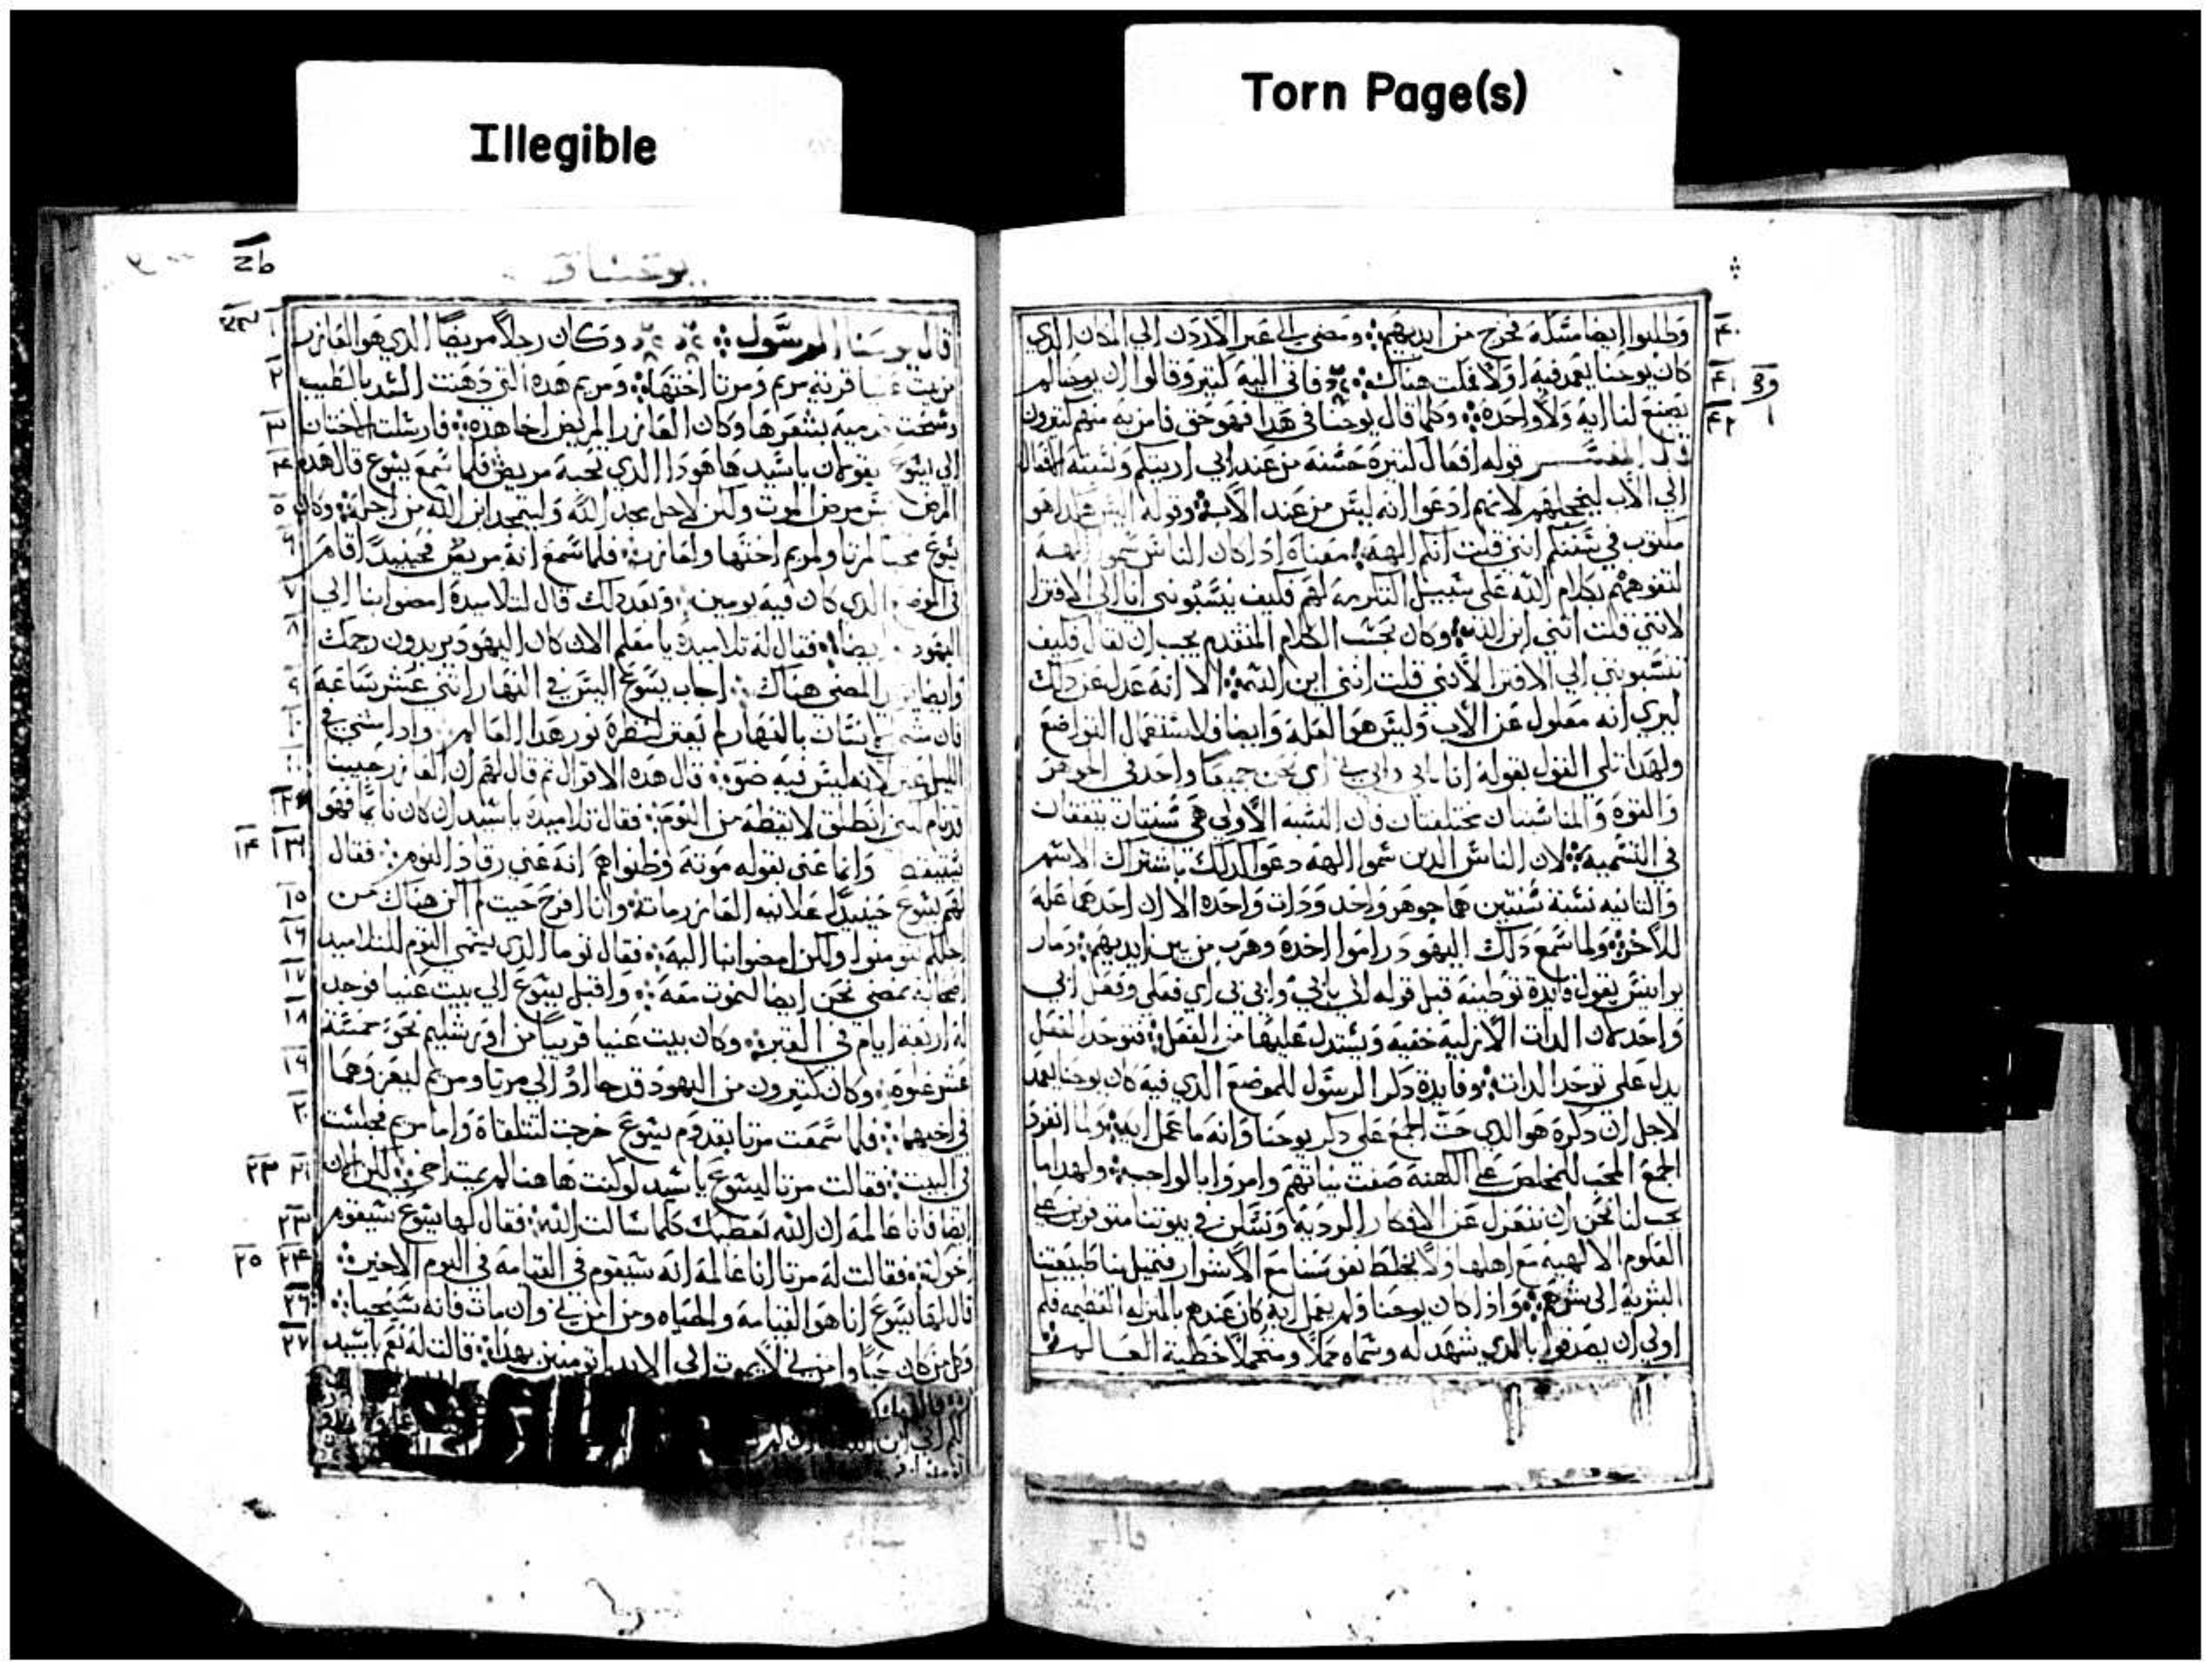 Illegible
Torn Page(s)
وطلبوا ايضا مسكه فخرج من ايديهم ومضي الي عبر الاردن الي المكان الذي
كان يوحنا يعمد فيه اولا فلبث هناك فاتي اليه كثير وقالوا ان يوحنا لم
يصنع لنا اية ولا واحدة وكلما قال يوحنا في هذا فهو حق فامن به منهم كثيرون
قال المفسر قوله افعال كثيرة حسنة من عند ابي اريتكم ونسبته الافعال
الي الاب لانهم ادعوا انه ليس من عند الاب وقوله اليس هذا هو
مكتوب في سنتكم انني قلت انكم الهة معناه اذا كان الناس سموا الهة
بكلام الله على سبيل التكرمة لهم فكيف تنسبونني انا الي الافترا
لانني قلت انني ابن الله وكان بحسب الكلام المتقدم يجب ان يقال فكيف
تنسبونني الي الافترا لانني قلت انني ابن الله الا انه عدل عن ذلك
ليري انه معلول عن الاب وليس هو العلة وايضا فلاستعمال التواضع
ولهذا تلي القول بقوله انا بابي وابي بي اي نحن جميعا واحد في الجوهر
والقوة والمناسبتان مختلفتان فان النسبة الاولي هي نسبتان يتفقان
في التسمية لان الناس الذين سموا الهة دعوا كذلك باشتراك الاسم
والثانيه نسبة شيئين هما جوهر واحد وذات واحدة الا ان احدهما علة
للاخر ولما سمع ذلك اليهود راموا اخذه وهرب من بين ايديهم ومار
يوانيس يقول فايدة توطيته قبل قوله اني بابي وابي بي اي فعلي وفعل ابي
واحد لان الذات الازليه خفية ويستدل عليها من الفعل فتوحد الفعل
يدل على توحد الذات وفايدة ذكر الرسول للموضع الذي فيه كان يوحنا يعمد
لاجل ان ذكره هو الذي حث الجمع على ذكر يوحنا وانه ما عمل اية ولما انفرد
الجمع المحب للمخلص عن الكهنة صفت نياتهم وامروا بالواجب ولهذا ما
يجب لنا نحن ان ننعزل عن الافكار الردية ونسكن في بيوتنا متوفرين على
العلوم الالهية مع اهلها ولا نخلط نفوسنا مع الاشرار فتميل بنا طبيعتنا
البشرية الى شرهم واذا كان يوحنا ولم يعمل اية كان عندهم بالمنزلة العظيمة فلم
اولي ان يصدقوا بالذي شهد له وسماه حملا ومتحملا خطية العالم
يوحنا
قال يوحنا الرسول وكان رجلا مريضا الذي هو العازر
من بيت عنيا قرية مريم ومرتا اختها ومريم هذه التي دهنت السيد بالطيب
ومسحت قدميه بشعرها وكان العازر المريض اخا هذه فارسلت الاختان
الي يسوع يقولان يا سيد ها هوذا الذي تحبه مريض فلما سمع يسوع قال هذه
المرض ليس مرض الموت ولكن لاجل مجد الله وليتمجد ابن الله من اجله وكان
يسوع محبا لمرتا ولمريم اختها ولعازر فلما سمع انه مريض فحينيذ اقام
في الموضع الذي كان فيه يومين وبعد ذلك قال لتلاميذه امضوا بنا الي
اليهودية ايضا فقال له تلاميذه يا معلم الان كان اليهود يريدون رجمك
وايضا تريد المضي هناك اجاب يسوع اليس في النهار اثنتي عشر ساعة
فان مشي انسان بالنهار لم يعثر لنظره نور هذا العالم واذا مشي في
الليل عثر لانه ليس فيه ضو قال هذه الاقوال ثم قال لهم ان العازر حبيبنا
قد نام لكني انطلق لايقظه من النوم فقال تلاميذه يا سيد ان كان نايما فهو
يستيقظ وانما عني بقوله موته وظنوا هم انه عني رقاد النوم فقال
لهم يسوع حينيذ علانيه العازر مات وانا افرح حيث لم اكن هناك من
اجلكم لتومنوا ولكن امضوا بنا اليه فقال توما الذي يسمي التوم للتلاميذ
اصحابه نمضي نحن ايضا لنموت معه واقبل يسوع الي بيت عنيا فوجد
له اربعة ايام في القبر وكان بيت عنيا قريبا من اورشليم نحو خمسة
عشر غلوة وكان كثيرون من اليهود قد جااوا الي مرتا ومريم ليعزوهما
في اخيهما فلما سمعت مرتا بقدوم يسوع خرجت لتتلقاه واما مريم فجلست
في البيت فقالت مرتا ليسوع يا سيد لو كنت هاهنا لم يمت اخي لكن الان
ايضا فانا عالمة ان الله يعطيك كلما سالت الله فقال لها يسوع سيقوم
اخوك فقالت له مرتا انا عالمة انه سيقوم في القيامة في اليوم الاخير
قال لها يسوع انا هو القيامة والحياه ومن امن بي وان مات فانه سيحيا
وكل من كان حيا وامن بي لا يموت الي الابد اتومنين بهذا قالت له نعم يا سيد